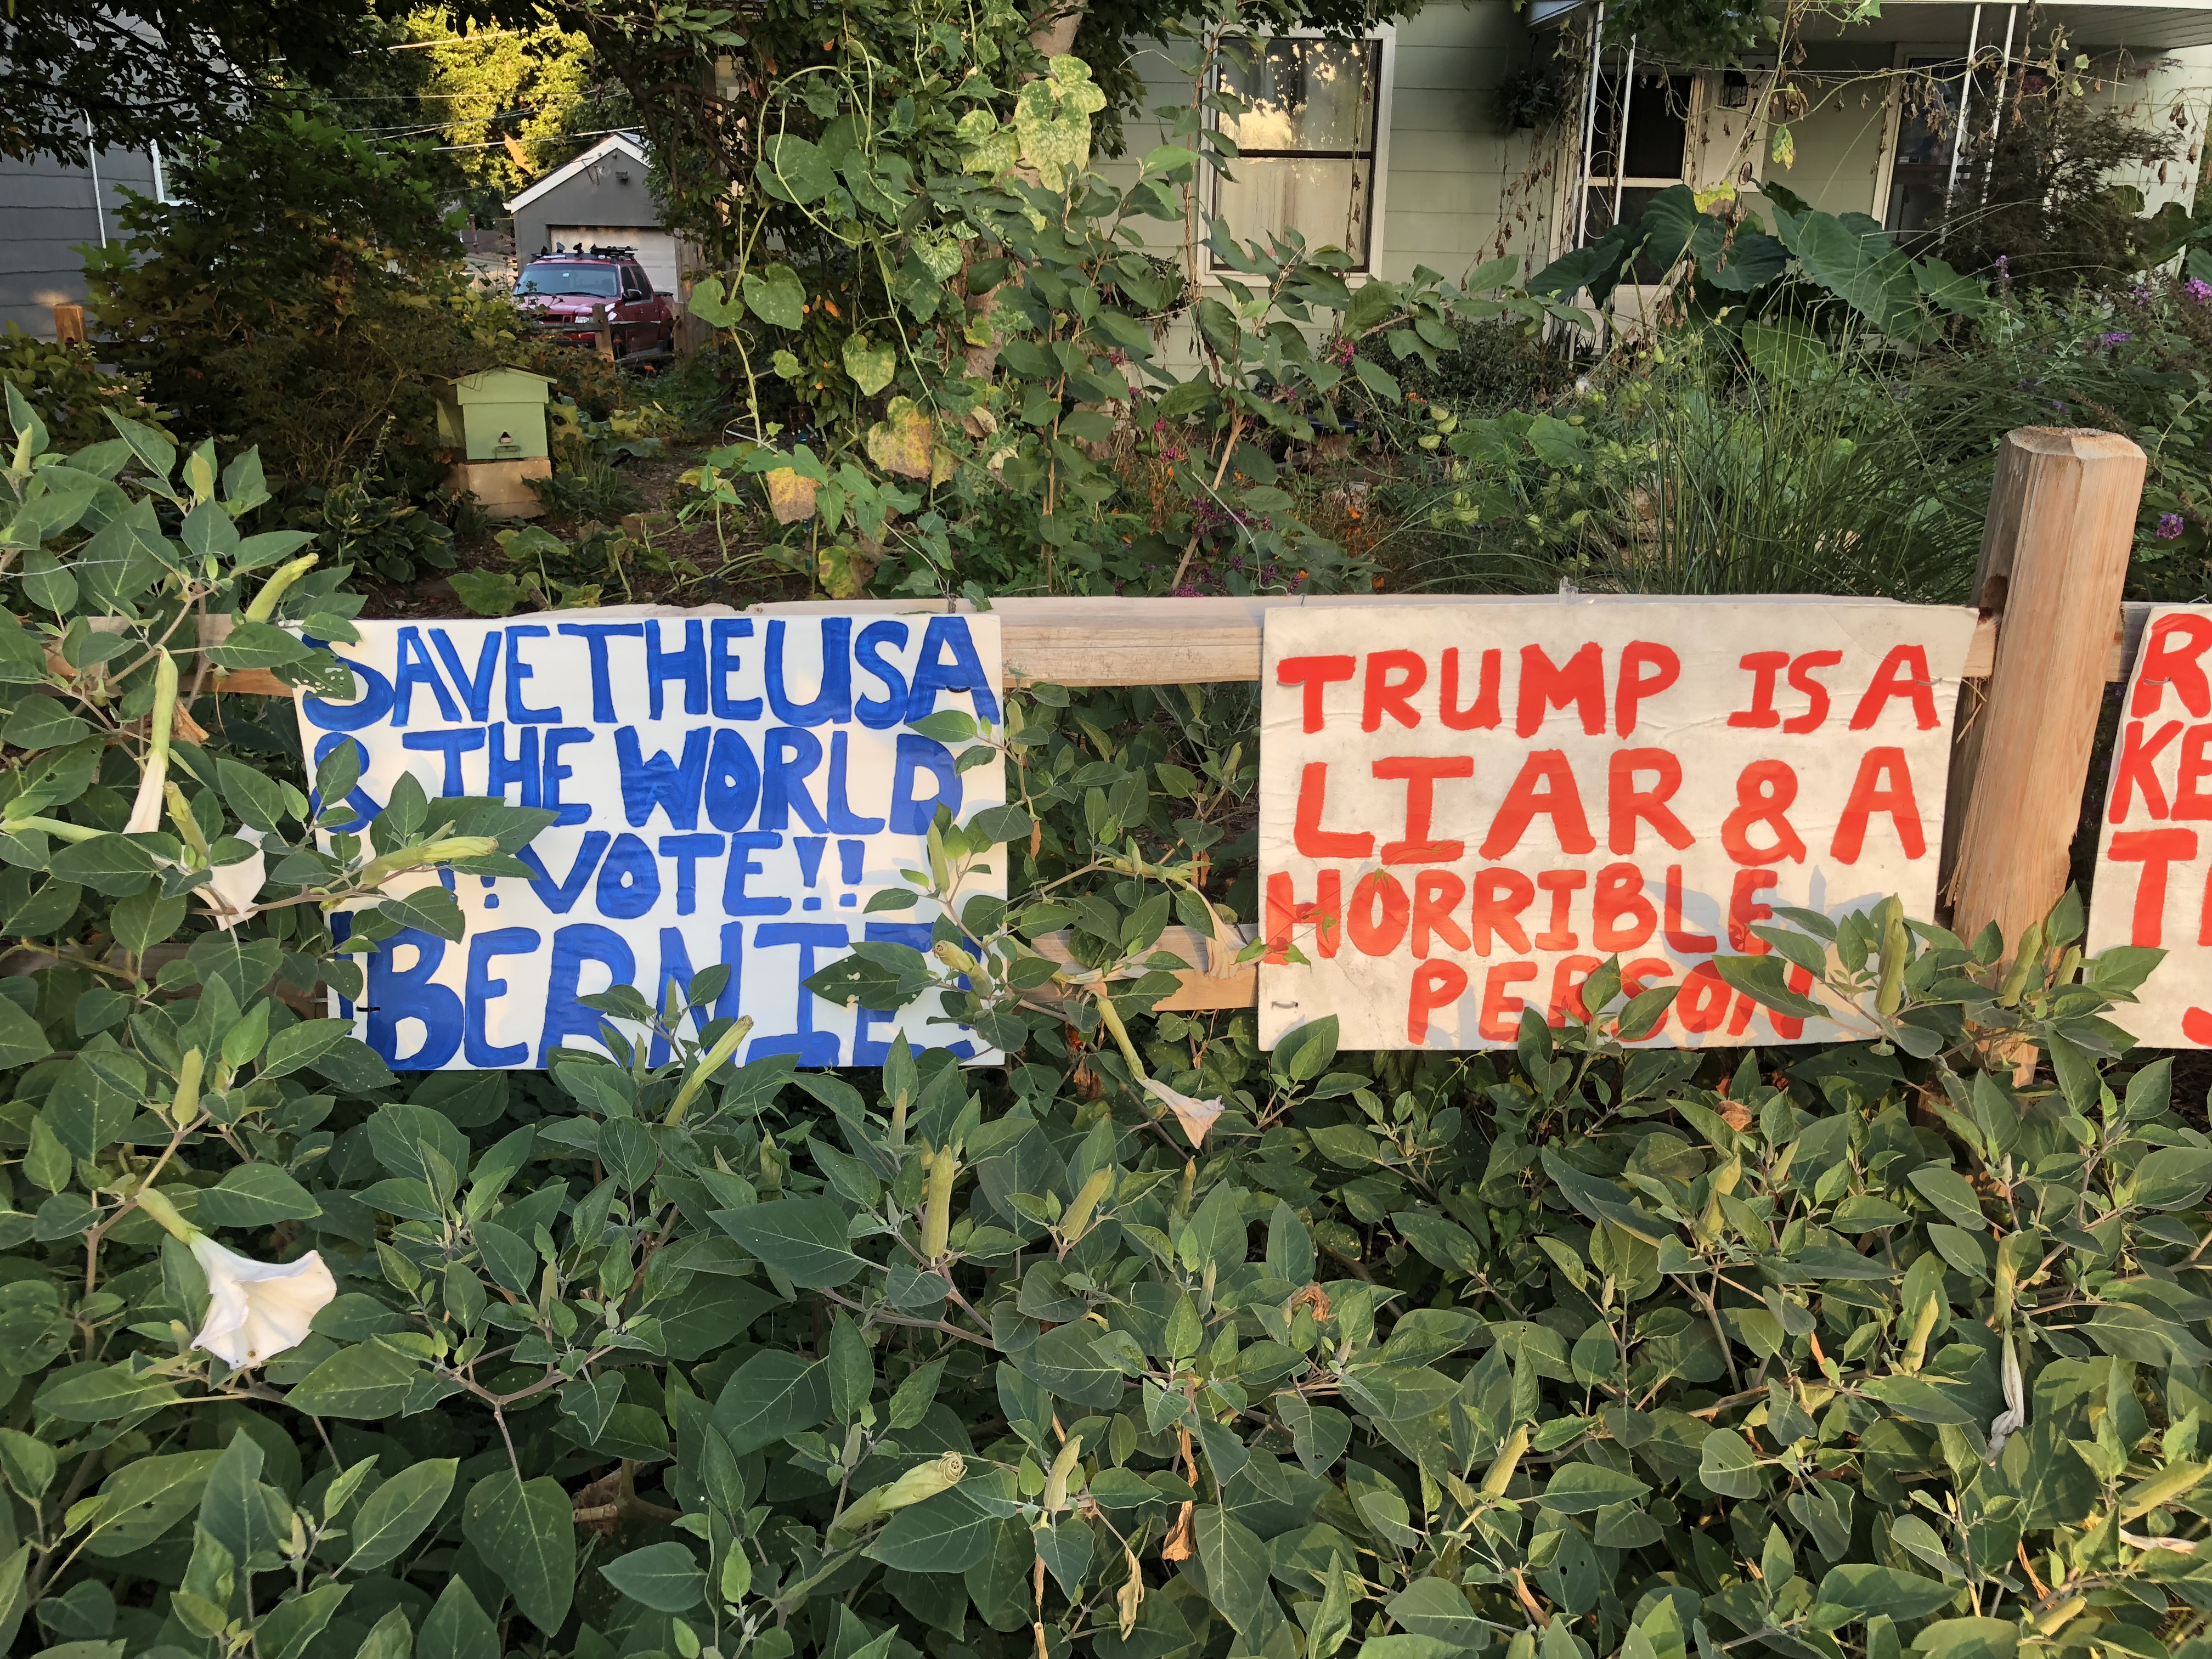 SAVE THE USA
& THE WORLD
!!VOTE!!
!BERNIE!
TRUMP IS A
LIAR & A
HORRIBLE
PERSON